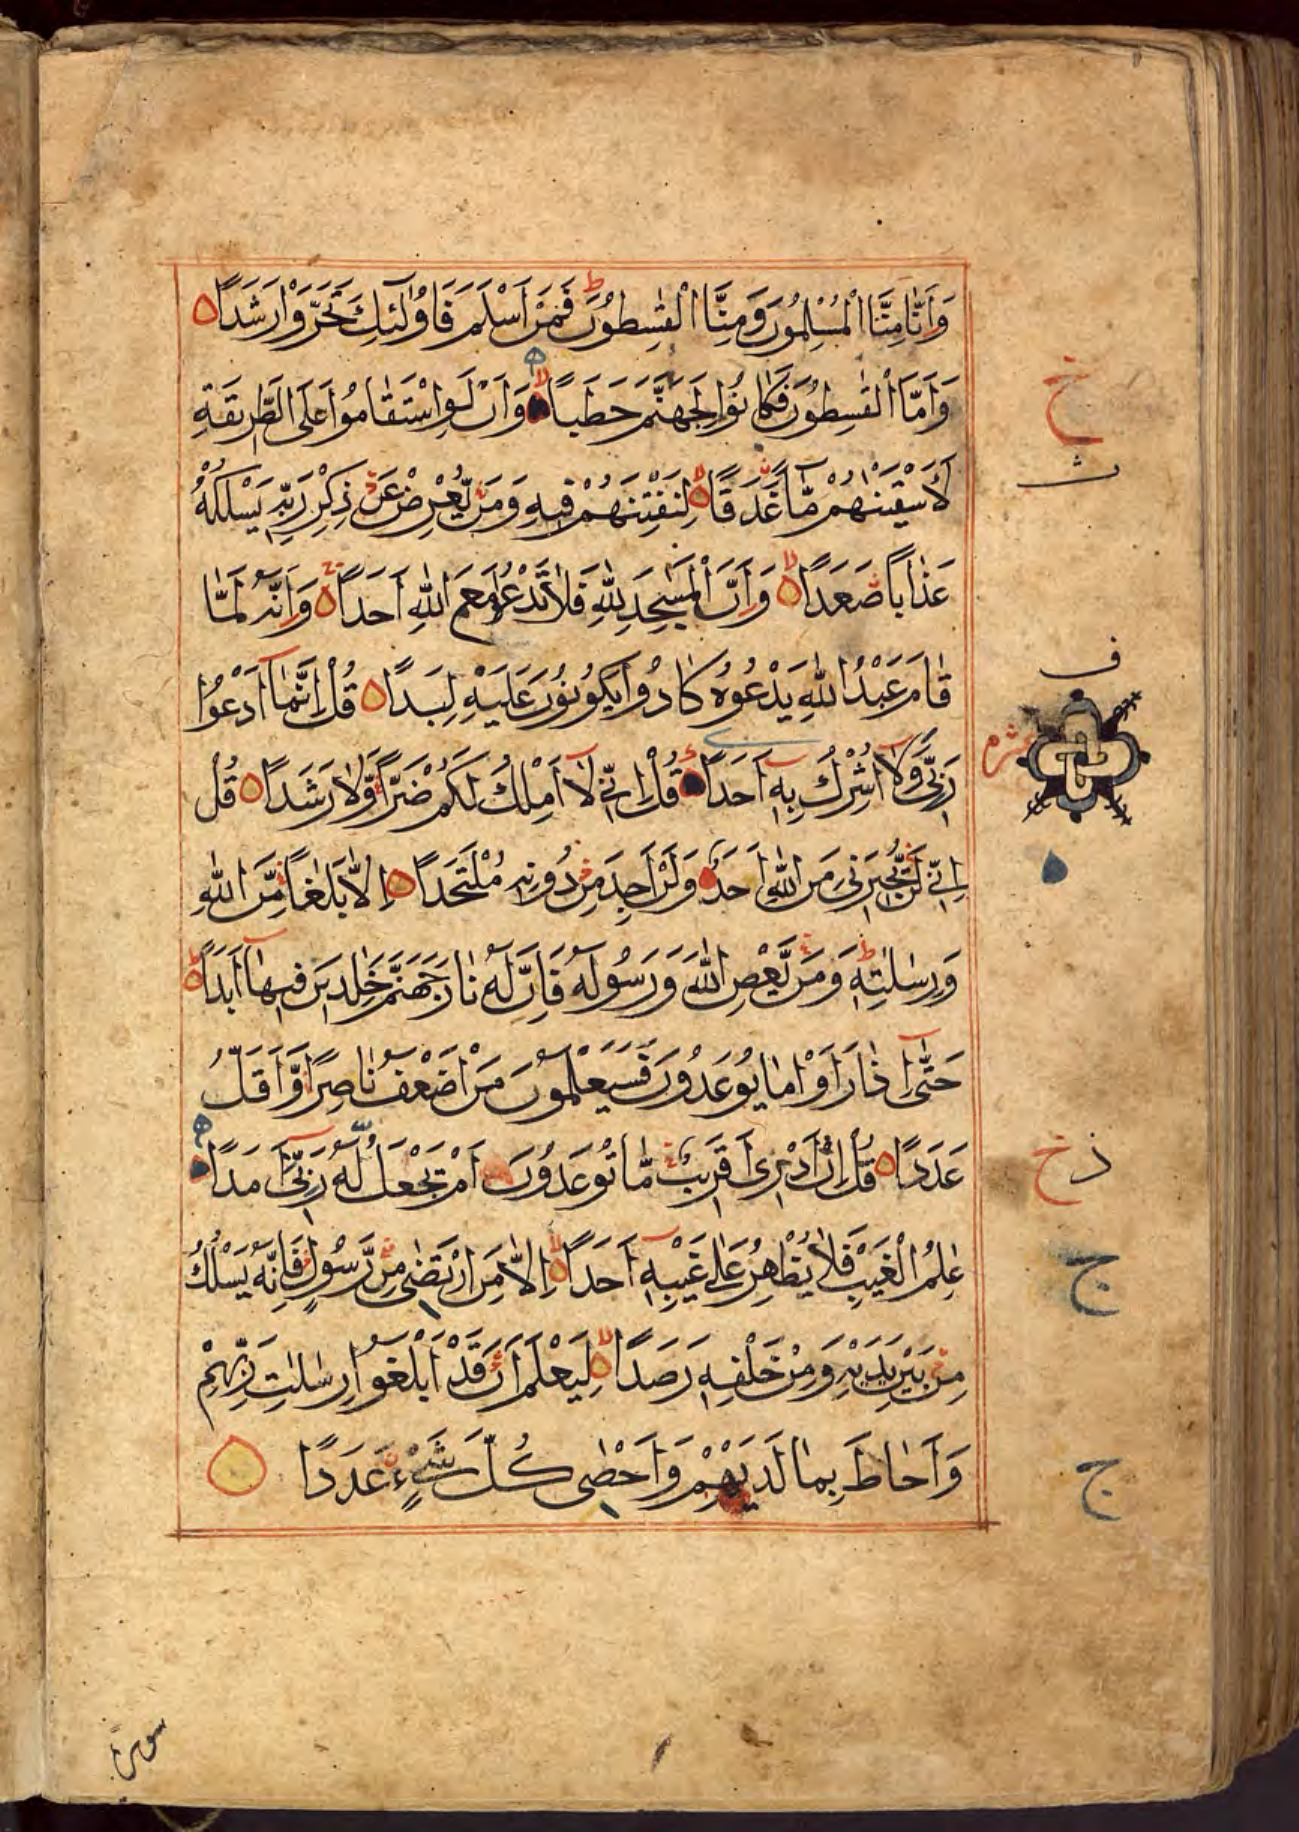 وَاَنَّا مِنَّا الْمُسْلِمُوْنَ وَمِنَّا الْقٰسِطُوْنَ فَمَنْ اَسْلَمَ فَاُولٰٓئِكَ تَحَرَّوْا رَشَدًا
وَاَمَّا الْقٰسِطُوْنَ فَكَانُوْا لِجَهَنَّمَ حَطَبًا وَاَنْ لَّوِ اسْتَقَامُوْا عَلَى الطَّرِيْقَةِ
لَاَسْقَيْنٰهُمْ مَّآءً غَدَقًا لِنَفْتِنَهُمْ فِيْهِ وَمَنْ يُّعْرِضْ عَنْ ذِكْرِ رَبِّهٖ يَسْلُكْهُ
عَذَابًا صَعَدًا وَاَنَّ الْمَسٰجِدَ لِلّٰهِ فَلَا تَدْعُوْا مَعَ اللّٰهِ اَحَدًا وَاَنَّهٗ لَمَّا
قَامَ عَبْدُ اللّٰهِ يَدْعُوْهُ كَادُوْا يَكُوْنُوْنَ عَلَيْهِ لِبَدًا قُلْ اِنَّمَآ اَدْعُوْا
رَبِّيْ وَلَآ اُشْرِكُ بِهٖٓ اَحَدًا قُلْ اِنِّيْ لَآ اَمْلِكُ لَكُمْ ضَرًّا وَّلَا رَشَدًا قُلْ
اِنِّيْ لَنْ يُّجِيْرَنِيْ مِنَ اللّٰهِ اَحَدٌ وَلَنْ اَجِدَ مِنْ دُوْنِهٖ مُلْتَحَدًا اِلَّا بَلٰغًا مِّنَ اللّٰهِ
وَرِسٰلٰتِهٖ وَمَنْ يَّعْصِ اللّٰهَ وَرَسُوْلَهٗ فَاِنَّ لَهٗ نَارَ جَهَنَّمَ خٰلِدِيْنَ فِيْهَآ اَبَدًا
حَتّٰىٓ اِذَا رَاَوْا مَا يُوْعَدُوْنَ فَسَيَعْلَمُوْنَ مَنْ اَضْعَفُ نَاصِرًا وَّاَقَلُّ
عَدَدًا قُلْ اِنْ اَدْرِيْٓ اَقَرِيْبٌ مَّا تُوْعَدُوْنَ اَمْ يَجْعَلُ لَهٗ رَبِّيْٓ اَمَدًا
عٰلِمُ الْغَيْبِ فَلَا يُظْهِرُ عَلٰى غَيْبِهٖٓ اَحَدًا اِلَّا مَنِ ارْتَضٰى مِنْ رَّسُوْلٍ فَاِنَّهٗ يَسْلُكُ
مِنْ بَيْنِ يَدَيْهِ وَمِنْ خَلْفِهٖ رَصَدًا لِيَعْلَمَ اَنْ قَدْ اَبْلَغُوْا رِسٰلٰتِ رَبِّهِمْ
وَاَحَاطَ بِمَا لَدَيْهِمْ وَاَحْصٰى كُلَّ شَيْءٍ عَدَدًا
خ
ف
ذ خ
ج
ج